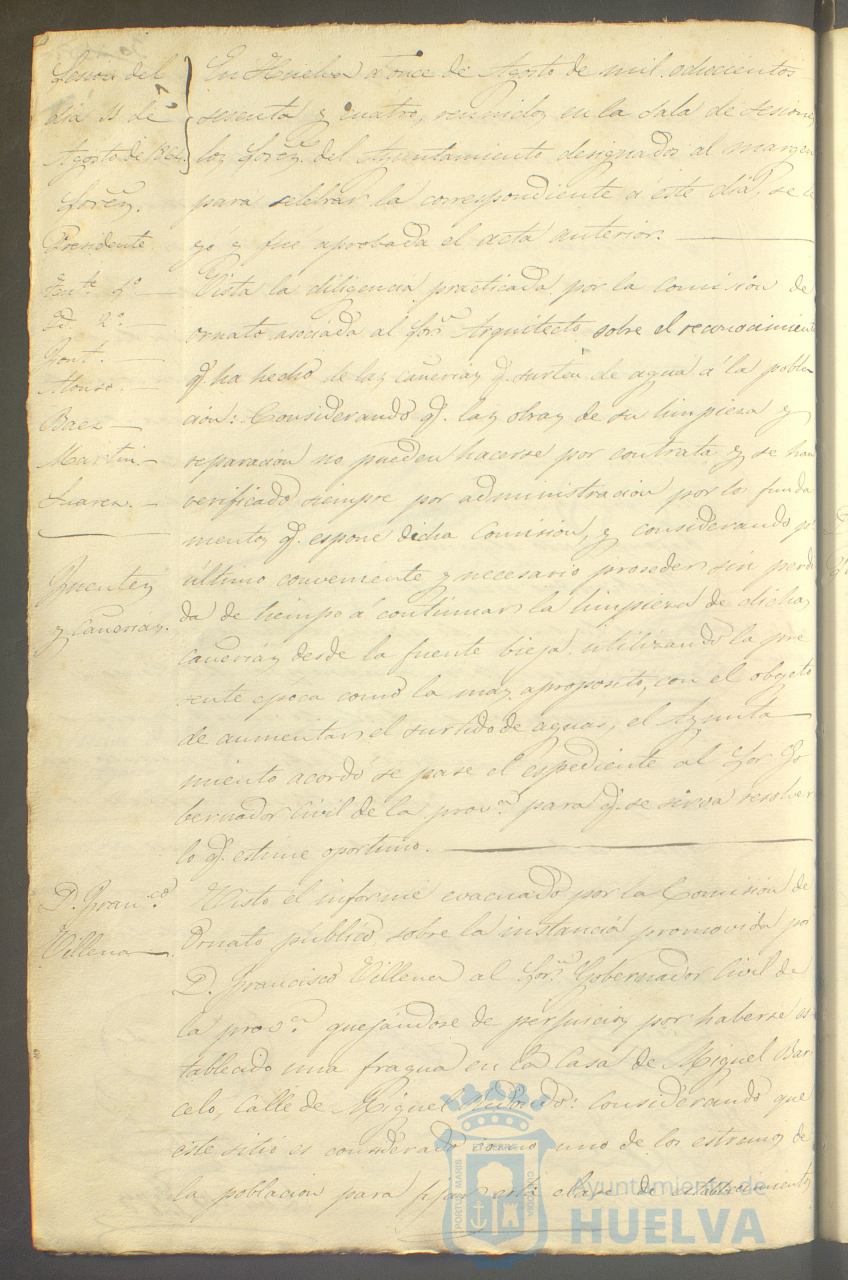 Sesion del
dia 11 de
Agosto de 1864.
Sores.
Presidente
Tente. 1º
Id. 2º
Pont.
Alonso.
Baez
Martin
Suarez.
En Huelva a once de Agosto de mil ochocientos
sesenta y cuatro, reunidos en la sala de sesiones
los Sores. del Ayuntamiento designados al margen
para selebrar la correspondiente a este dia, se le
yó y fué aprobada el acta anterior.
Fuentes
y cañerias.
Vista la diligencia practicada por la Comision de
ornato asociada al Sor. Arquitecto sobre el reconocimiento
q. ha hecho de las cañerias q. surten de agua á la pobla
cion: Considerando q. las obras de su limpieza y
reparacion no pueden hacerse por contrata y se han
verificado siempre por administracion por los funda
mentos q. espone dicha Comision, y considerando pr.
último conveniente y necesario proseder sin perdi
da de tiempo á continuar la limpieza de dichas
cañerias desde la fuente bieja utilizando la pre
sente época como la mas aproposito, con el obgeto
de aumentar el surtido de aguas, el Ayunta
miento acordó se pase el espediente al Sor. Go
bernador Civil de la prova. para q. se sirva resolver
lo q. estime oportuno.
D. Franco.
Villena
Visto el informe evacuado por la Comision de
Ornato publico, sobre la instancia promovida por
D. Francisco Villena al Sor. Gobernador Civil de
la prova. quejándose de perjuicios por haberse es
tablecido una fragua en la Casa de Miguel Bar
celo, calle de Miguel Redondo: considerando que
este sitio es considerado como uno de los estremos de
la poblacion para fijar esta clase de establecimientos
PORTUS MARIS
CUSTODIA
Ayuntamiento de
HUELVA